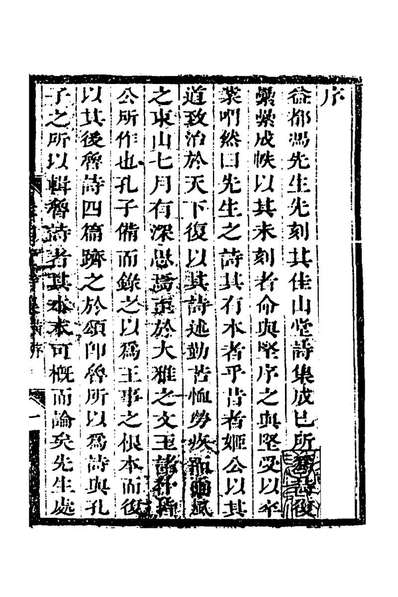 序
益都馮先生先刻其佳山堂詩集成已所 復
纍纍成帙以其未刻者命與堅序之與堅受以卒
業喟然曰先生之詩其有本者乎昔者姬公以其
道致治於天下復以其詩述勤苦恤勞疚 風
之東山七月有深思焉 於大雅之文王諸什皆
公所作也孔子備而錄之以為王事之根本而復
以其後魯詩四篇躋之於頌即魯所以為詩與孔
子之所以輯魯詩者其本末可概而論矣先生處